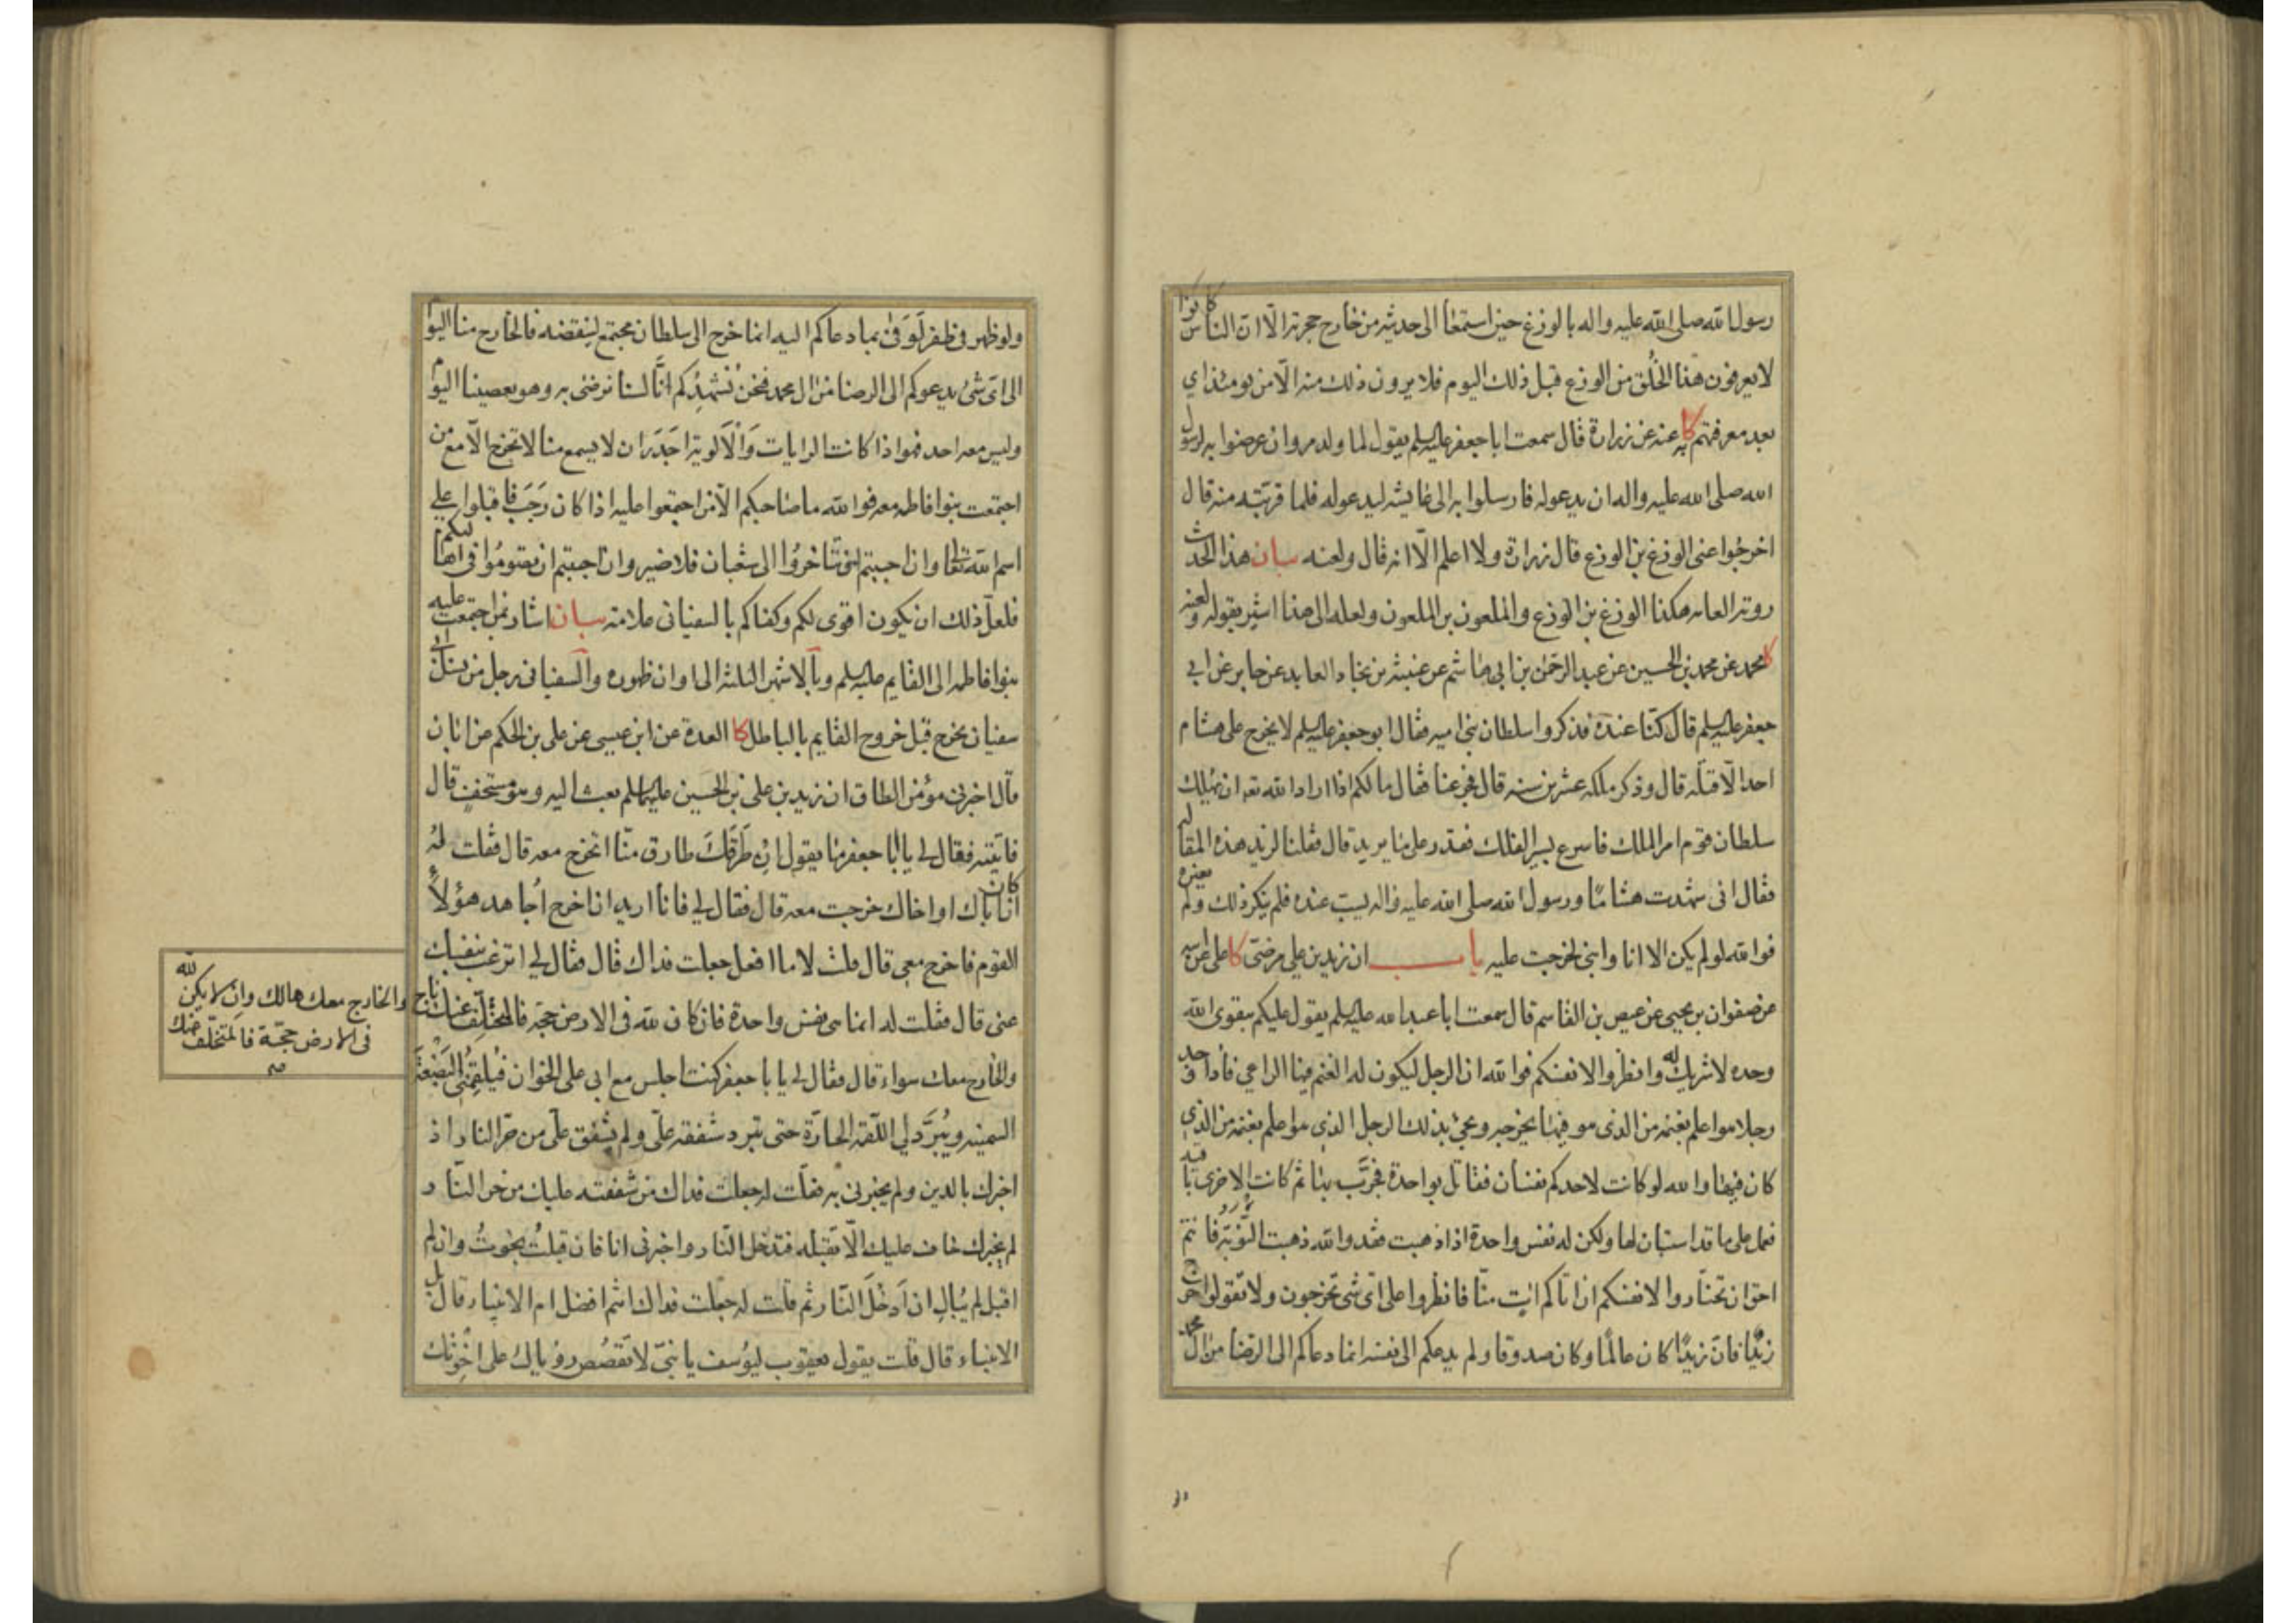 رسول الله صلى الله عليه واله بالوزغ حين استمعا الى حديثه من خارج حجرته الا ان الناس كانوا
لا يعرفون هذا الخُلق من الوزغ قبل ذلك اليوم فلا يرون ذلك منه الّا من يومئذ اي
بعد معرفتهم به كا عنه عن زرارة قال سمعت ابا جعفر عليه السلم يقول لما ولد مروان عرضوا به لرسول
الله صلى الله عليه واله ان يدعو له فارسلوا به الى عايشه ليدعو له فلما قربته منه قال
اخرجُوا عنى الوزغ بن الوزغ قال زرارة ولا اعلم الّا انه قال ولعنه بيان هذا الحديث
روته العامه هكذا الوزغ بن الوزغ والملعون بن الملعون ولعله الى هذا اشير بقوله ولعنه
كا محمد عن محمد بن الحسين عن عبد الرحمن بن ابي هاشم عن عنبسة بن بجاد العابد عن جابر عن ابي
جعفر عليه السلم قال كنّا عنده فذكروا سلطان بنى اميه فقال ابو جعفر عليه السلم لا يخرج على هشام
احد الّا قتله قال وذكر ملكه عشرين سنه قال فجزعنا فقال ما لكم اذا اراد الله تع ان يهلك
سلطان قوم امر الملك فاسرع بسير الفلك فقدر على ما يريد قال فقلنا لزيد هذه المقاله
فقال انى شهدت هشامًا ورسول الله صلى الله عليه واله يسب عنده فلم ينكر ذلك ولم يغيره
فوالله لو لم يكن الا انا وابنى لخرجت عليه باب ان زيد بن علي مرضىّ كا على عن ابيه
عن صفوان بن يحيى عن عيص بن القاسم قال سمعت ابا عبد الله عليه السلم يقول عليكم بتقوى الله
وحده لا شريك له وانظروا لانفسكم فوالله ان الرجل ليكون له الغنم فيها الراعي فاذا وجد
رجلا هو اعلم بغنمه من الذى هو فيها يخرجه ويجئ بذلك الرجل الذي هو اعلم بغنمه من الذي
كان فيها والله لو كانت لاحدكم نفسان فقاتل بواحدة يجرّب بها ثم كانت الاخرى باقيه
فعمل على ما قد استبان لها ولكن له نفس واحدة اذا ذهبت فقد والله ذهبت التوبة فانتم
احق ان تختاروا لانفسكم ان اتاكم ات منّا فانظروا على اىّ شئ تخرجون ولا تقولوا خرج
زيد فان زيدًا كان عالمًا وكان صدوقا ولم يدعكم الى نفسه انما دعاكم الى الرضا من ال محمد
ولو ظهر لوفى بما دعاكم اليه انما خرج الى سلطان مجتمع لينقضه فالخارج منا اليوم
الى اىّ شئ يدعوكم الى الرضا من ال محمد فنحن نُشهِدُكم انّا لسنا نرضى به وهو يعصينا اليوم
وليس معه احد فهو اذا كانت الرايات والالوية اجدر ان لا يسمع منا لا تخرج الّا مع من
اجتمعت بنوا فاطمه معه فوالله ما صاحبكم الّا من اجتمعوا عليه اذا كان رجب فاقبلوا على
اسم الله تعالى وان احببتم ان تتاخروا الى شعبان فلا ضير وان احببتم ان تصوموا فى اهاليكم
فلعلّ ذلك ان يكون اقوى لكم وكفاكم بالسفيانى علامة بيان اشار بمن اجتمعت عليه
بنوا فاطمه الى القايم عليه السلم وبالاشهر الثلثه الى اوان ظهوره والسفيانى رجل من نسل ابي
سفيان يخرج قبل خروج القايم بالباطل كا العدة عن ابن عيسى عن على بن الحكم عن ابان
قال اخبرنى مؤمن الطاق ان زيد بن على بن الحسين عليهما السلم بعث اليه وهو مستخف قال
فاتيته فقال لي يا ابا جعفر ما يقول ان طَرَقَكَ طارق منّا اتخرج معه قال فقلت لهُ
ان كان اباك او اخاك خرجت معه قال فقال لي فانا اريد ان اخرج اُجاهد هؤلاء
القوم فاخرج معي قال قلت لا ما افعل جعلت فداك قال فقال لي اترغب بنفسك
عنى قال فقلت له انما هى نفس واحدة فان كان لله فى الارض حجة فالمتخلّف عنك ناج
والخارج معك سواء قال فقال لي يا با جعفر كنت اجلس مع ابي على الخوان فيلقمنى البَضعَة
السمينه ويُبَرَّد لي اللقمة الحارّة حتى تبرد شفقة علىّ ولم يشفق علىّ من حرّ النار اذ
اخبرك بالدين ولم يخبرنى به فقلت له جعلت فداك من شفقته عليك من حر النّار
لم يخبرك خاف عليك الّا تقبله فتدخل النّار واخبرنى انا فان قبلتُ نجوتُ وان لم
اقبل لم يُبالِ ان اَدخُلَ النّار ثم قلت له جعلت فداك انتم افضل ام الانبياء قال بل
الانبياء قال قلت يقول يعقوب ليوُسف يا بنىّ لا تقصُص رؤياك على اخوتك
والخارج معك هالك وان لا يكن لله
فى الارض حجّة فالمتخلّف عنك
صح